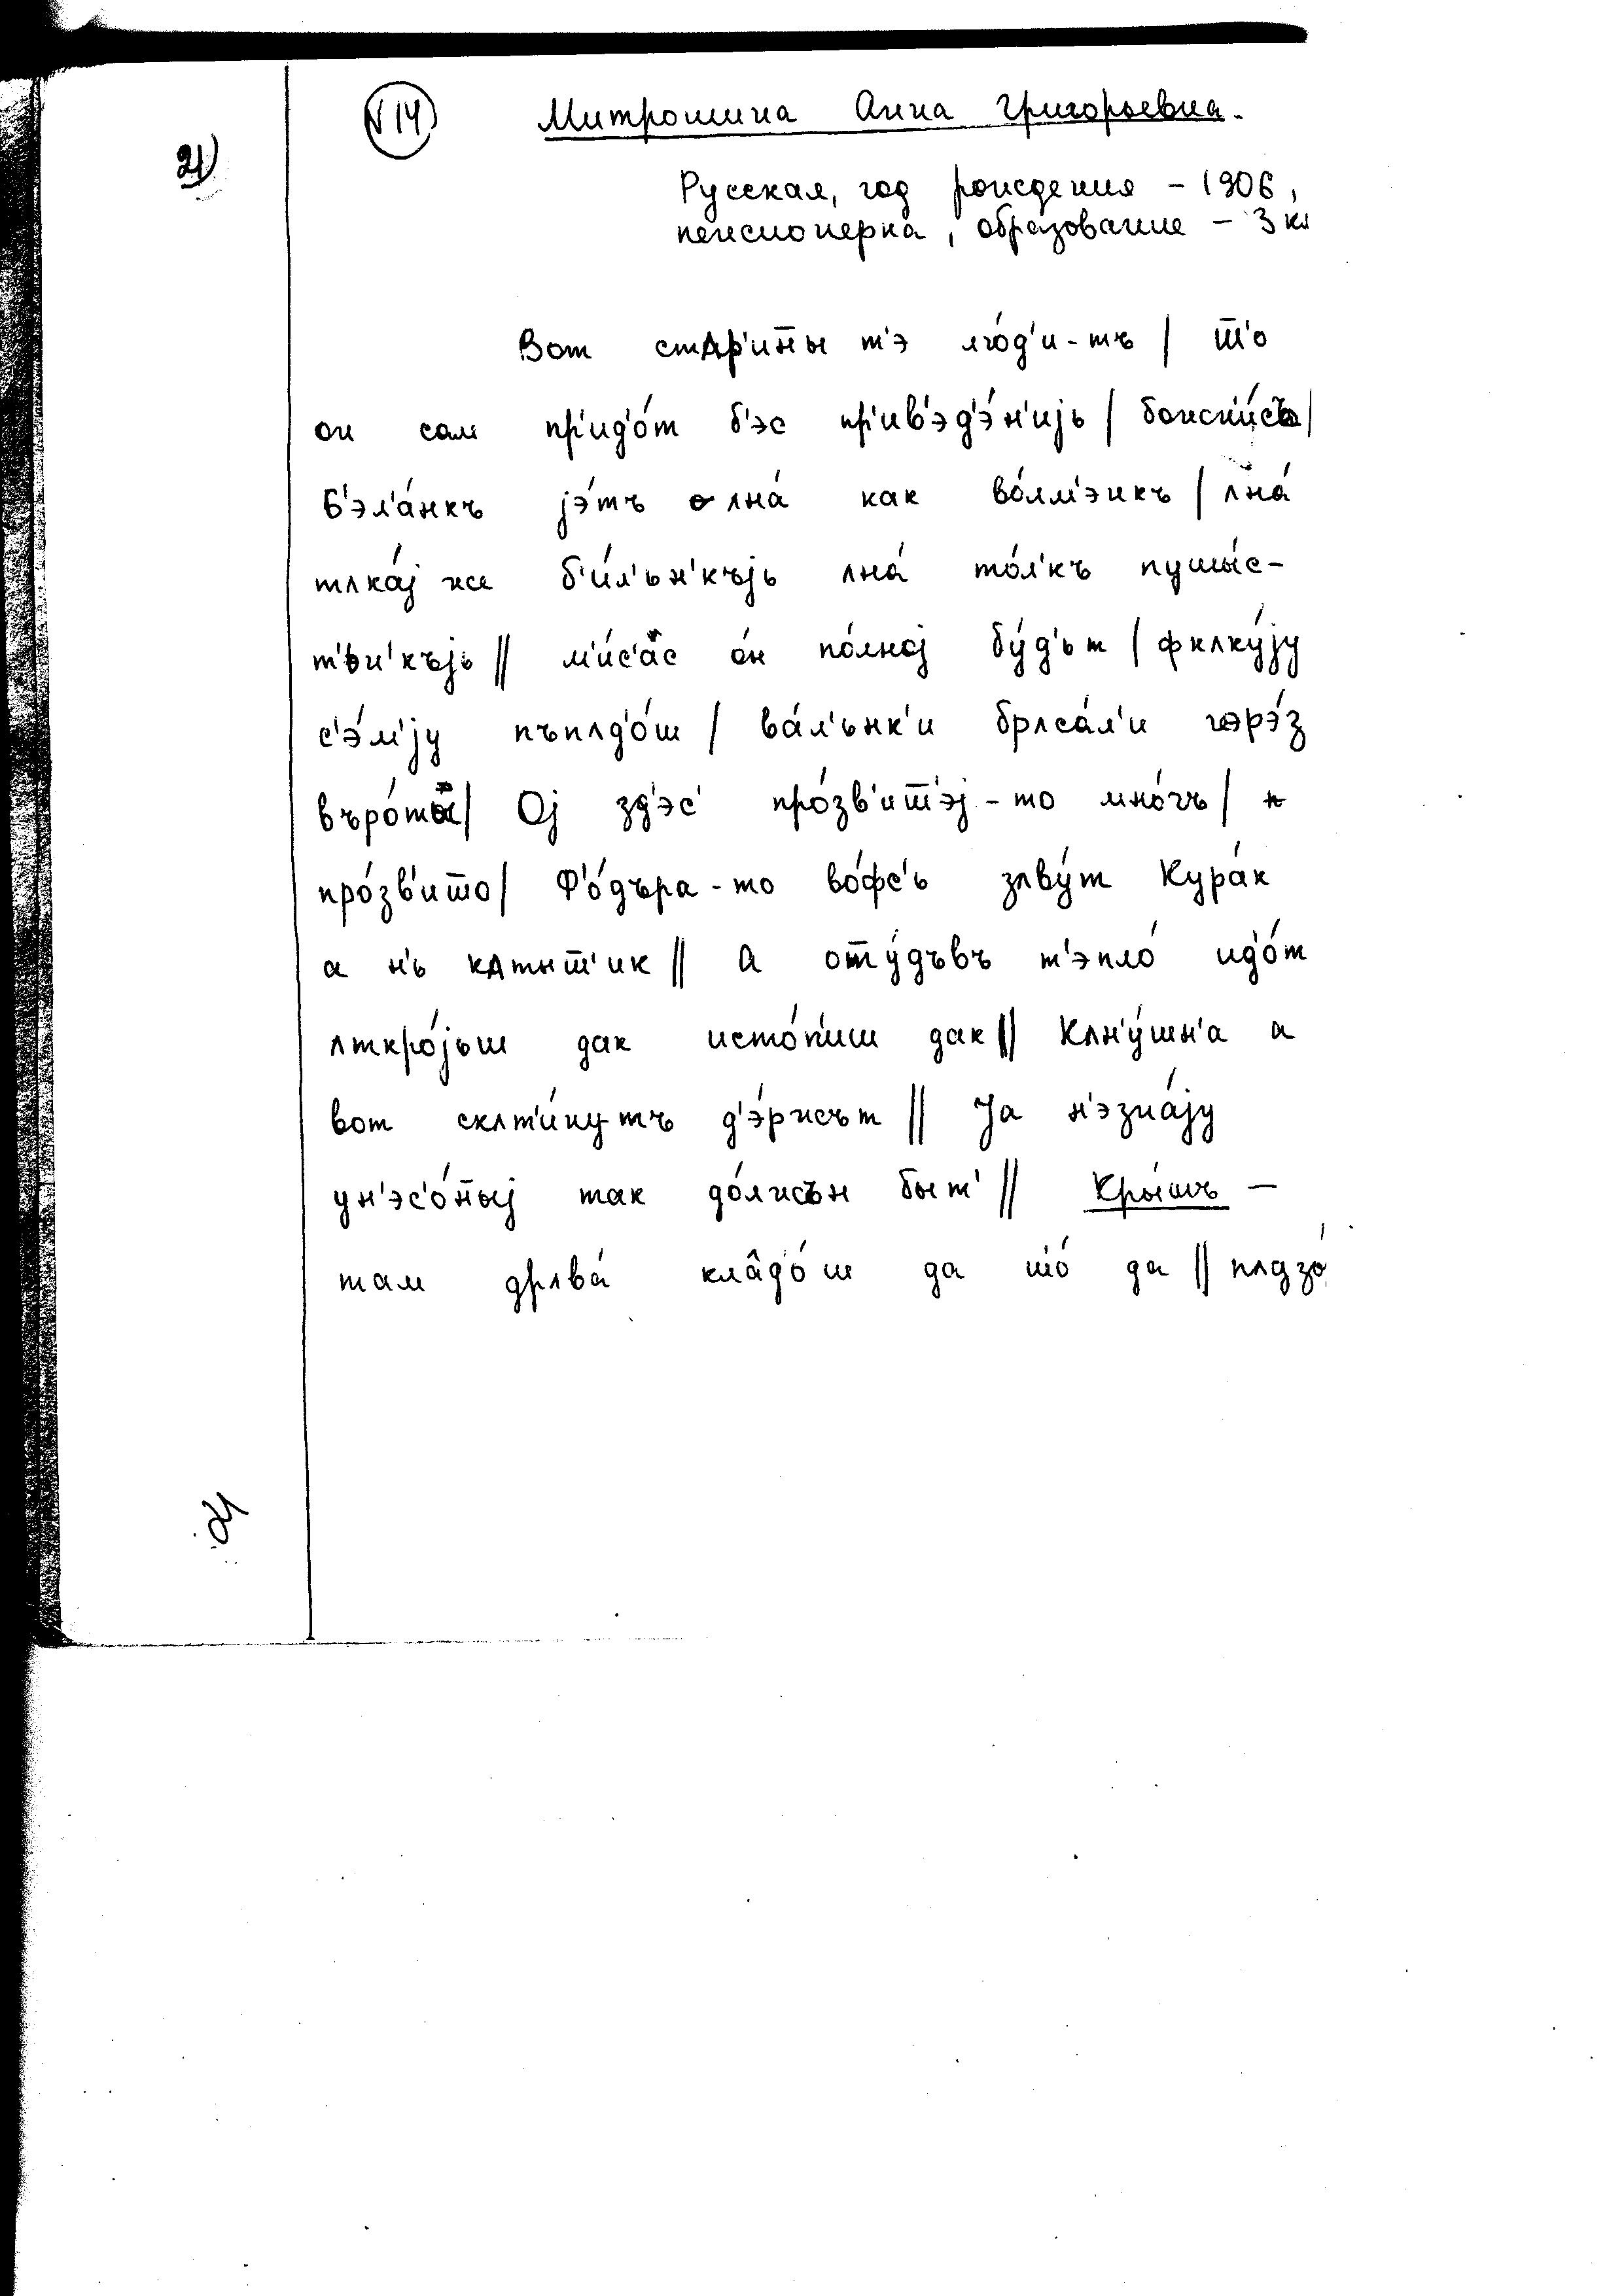 21)
N 14 Митрошина Анна Григорьевна.
Русская, год рождения – 1906,
пенсионерка, образование – 3 кл
Вот стʌр'ины̄ т'э лго́д'и-тъ | ш̅'о
он сам пр'ид'о́т б'эс пр'ив'эд'э́н'иjь |
б'эл'а́нкъ jэ́тъ ʌна́ как во́лм'энкъ | ʌна́
тʌка́j жъ б'и́л'ьн'къjь ʌна́ то́л'къ пушы́с-
т'ьн'къjь || м'и́с'ас о́н по́лноj бу́д'ьт | фкʌку́jу
с'э́м'jу пъпʌд'о́ш | ва́л'ънк'и брʌса́л'и
въро́тъ | Оj зд'эс' про́зв'иш̅'эj-то мно́гъ |
про́зв'иш̅о | Ф'о́дъра-то во́фс'ь зʌву́т Кура́к
а н'ь || А оту́дъвъ т'эпло́ ид'о́т
ʌткро́jьш дак исто́п'иш дак || Кʌн'у́шн'а а
вот скʌт'и́нутъ д'э́ржът || Jа н'э зна́jу
ун'эс'о́н̅ыj так до́лжън быт' || Кры́шъ –
там дрʌва́ клад'о́ш да ш̅о́ да || пʌдзо́
21